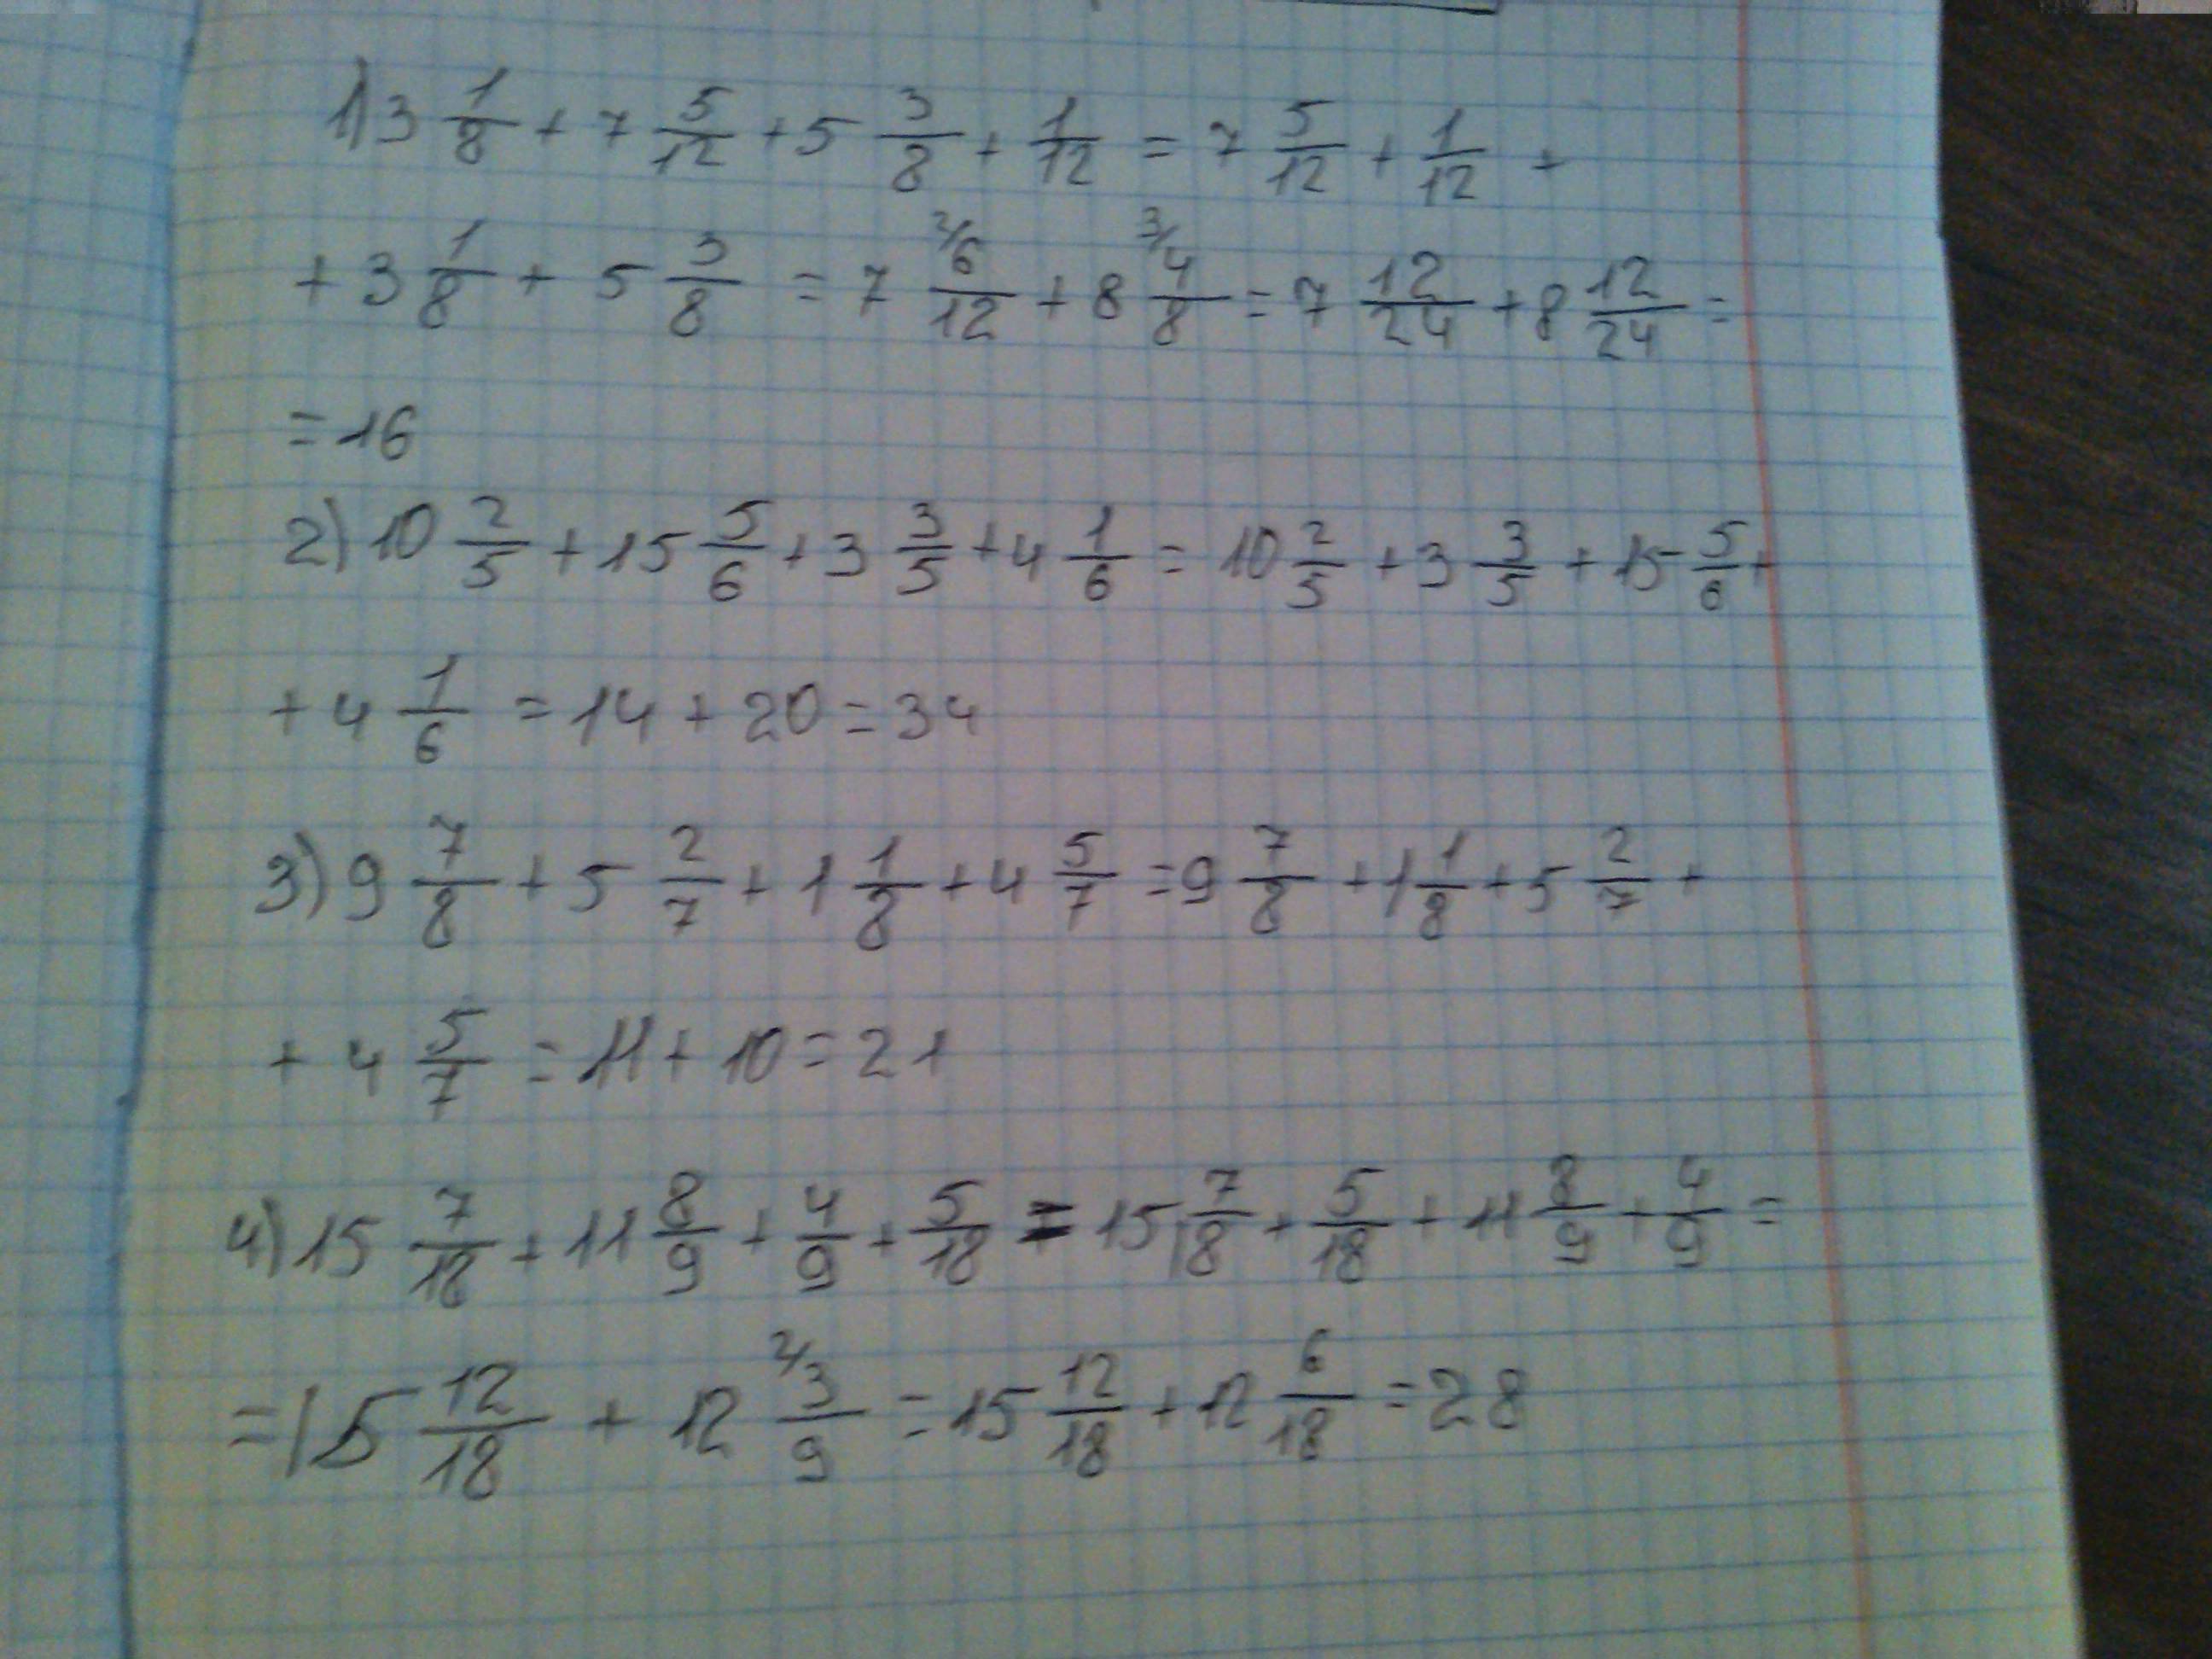 1) 3 1/8 + 7 5/12 + 5 3/8 + 1/12 = 7 5/12 + 1/12 +
+ 3 1/8 + 5 3/8 = 7 2/ 6/12 + 8 3/ 4/8 = 7 12/24 + 8 12/24 =
= 16
2) 10 2/5 + 15 5/6 + 3 3/5 + 4 1/6 = 10 2/5 + 3 3/5 + 15 5/6 +
+ 4 1/6 = 14 + 20 = 34
3) 9 7/8 + 5 2/7 + 1 1/8 + 4 5/7 = 9 7/8 + 1 1/8 + 5 2/7 +
+ 4 5/7 = 11 + 10 = 21
4) 15 7/18 + 11 8/9 + 4/9 + 5/18 = 15 7/18 + 5/18 + 11 8/9 + 4/9 =
= 15 12/18 + 12 2/ 3/9 = 15 12/18 + 12 6/18 = 28